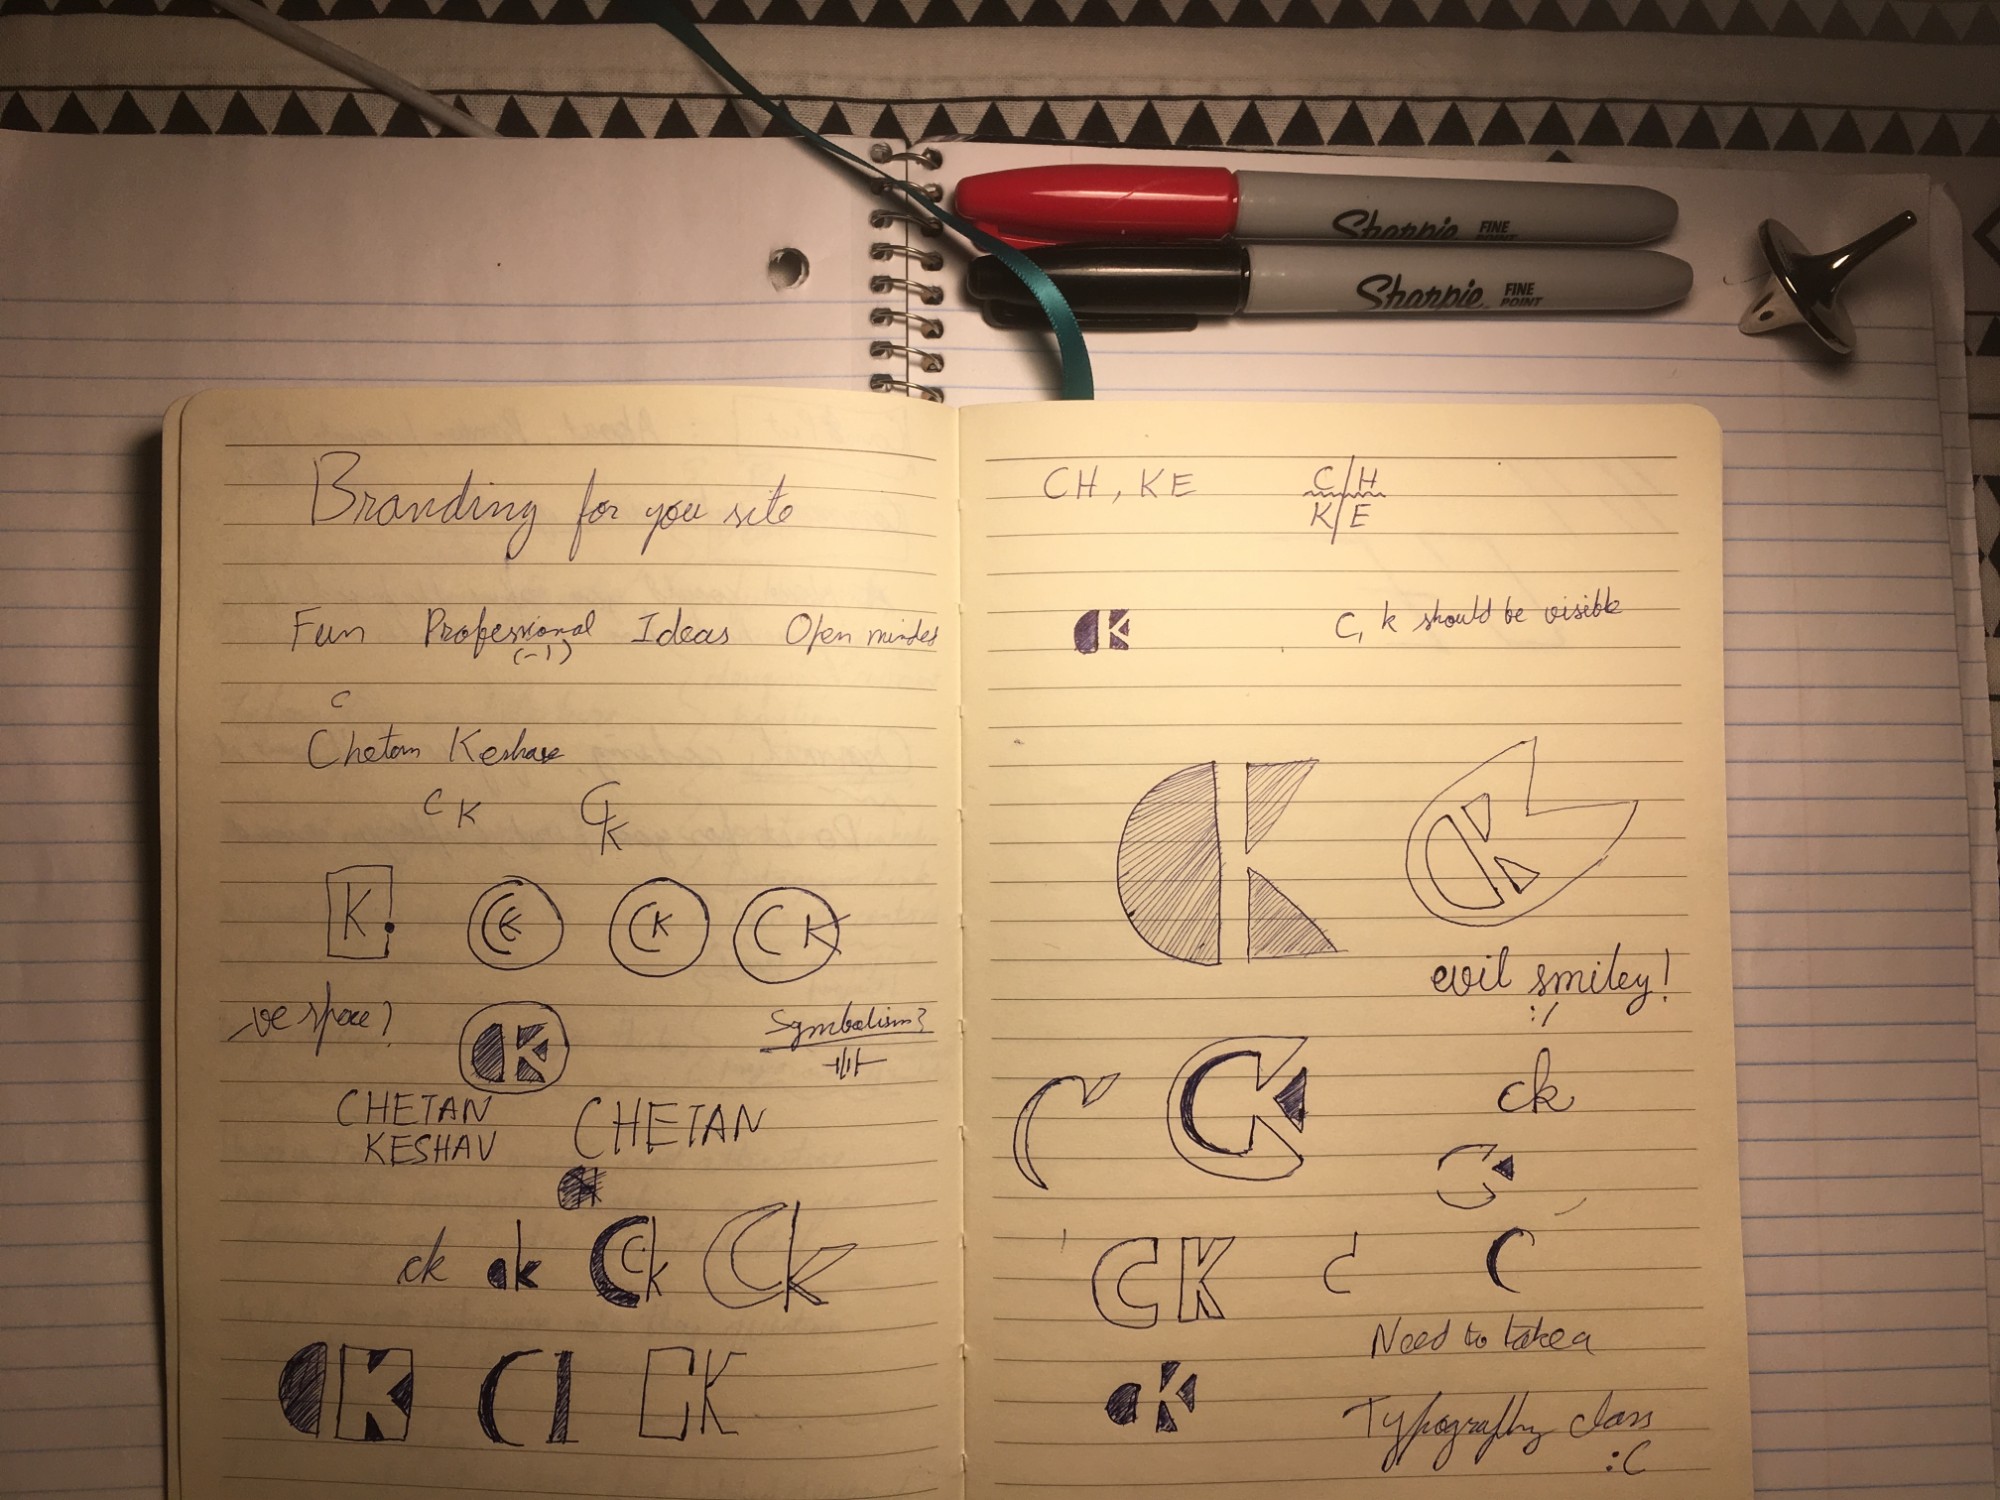 Sharpie FINE POINT
Sharpie FINE POINT
Branding for you site
Fun Professional Ideas Open mindes
(-1)
C
Chetan Keshav
C K CK
K. CK CK CK
-ve space? CK Symbolism?
CHETAN
KESHAV
CHETAN
CK
ck ck Ck Ck
CK CI CK
CH, KE
C H
K E
CK C, k should be visible
CK CK
evil smiley!
:/
C CK ck
C
CK C C
Need to take a
CK Typography class
:C